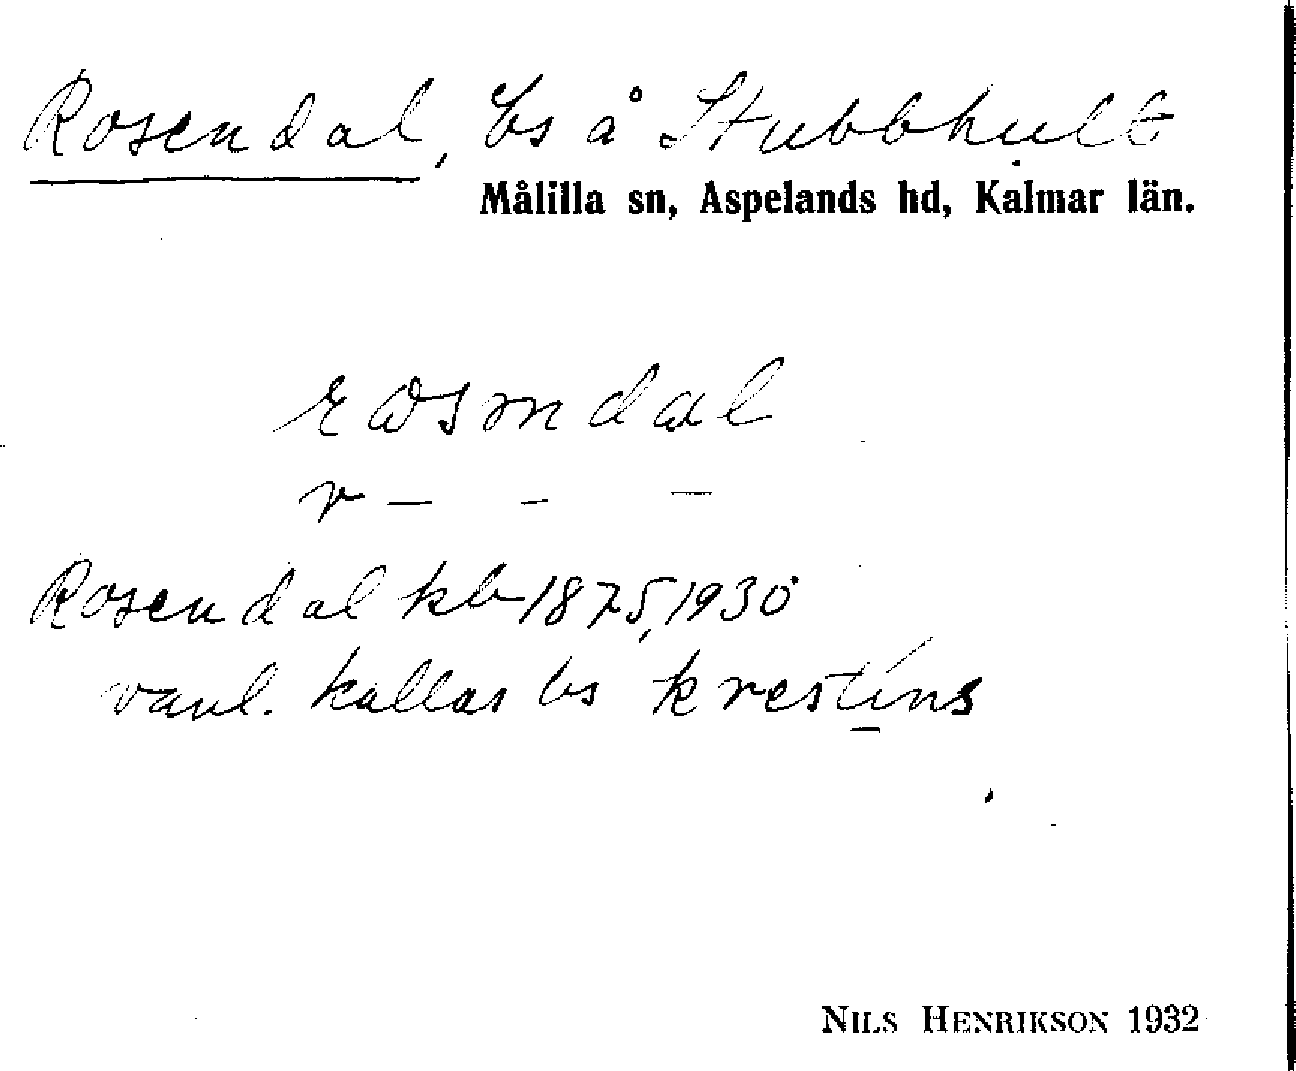 Rosendal, ts å Stubbhult
Målilla sn, Aspelands hd, Kalmar län.
rωsṇdal
r – - –
Rosendal kb 1875, 1930
vanl. kallas ts krestíns
NILS HENRIKSON 1932